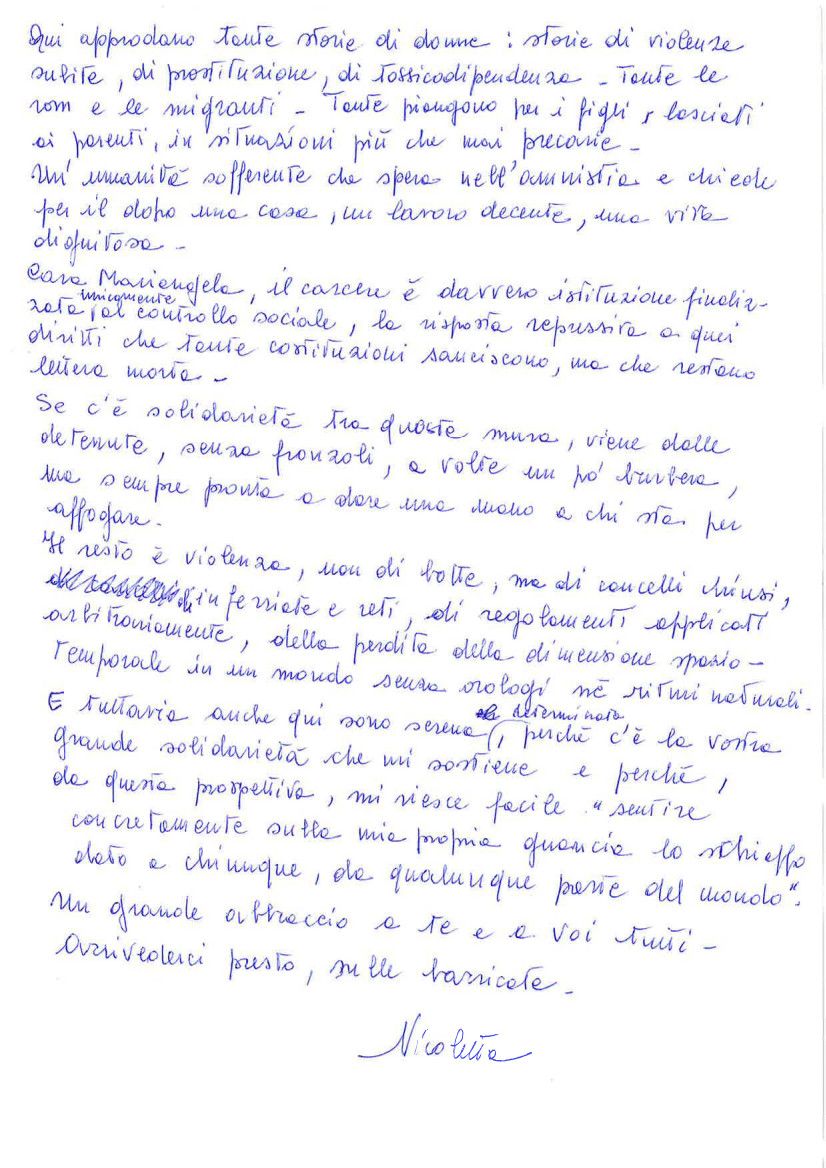 Qui approdano tante storie di donne : storie di violenze
subite, di prostituzione, di tossicodipendenza - Tante le
rom e le migranti - Tante piangono per i figli, lasciati
ai parenti, in situazioni più che mai precarie -
Un'umanità sofferente che spera nell'amnistia e chiede
per il dopo una casa, un lavoro decente, una vita
dignitosa -
Cara Mariangela, il carcere è davvero istituzione finaliz-
unicamente
zata al controllo sociale, la risposta repressiva a quei
diritti che tante costituzioni sanciscono, ma che restano
lettera morta -
Se c'è solidarietà tra queste mura, viene dalle
detenute, senza fronzoli, a volte un pò burbera,
ma sempre pronta a dare una mano a chi sta per
affogare.
Il resto è violenza, non di botte, ma di cancelli chiusi,
di inferriate e reti, di regolamenti applicati
arbitrariamente, della perdita della dimensione spazio-
temporale in un mondo senza orologi nè ritmi naturali.
e determinata
E tuttavia anche qui sono serena, perchè c'è la vostra
grande solidarietà che mi sostiene e perchè,
da questa prospettiva, mi riesce facile "sentire
concretamente sulla mia propria guancia lo schiaffo
dato a chiunque, da qualunque parte del mondo".
Un grande abbraccio a te e a voi tutti -
Arrivederci presto, sulle barricate -
Nicoletta